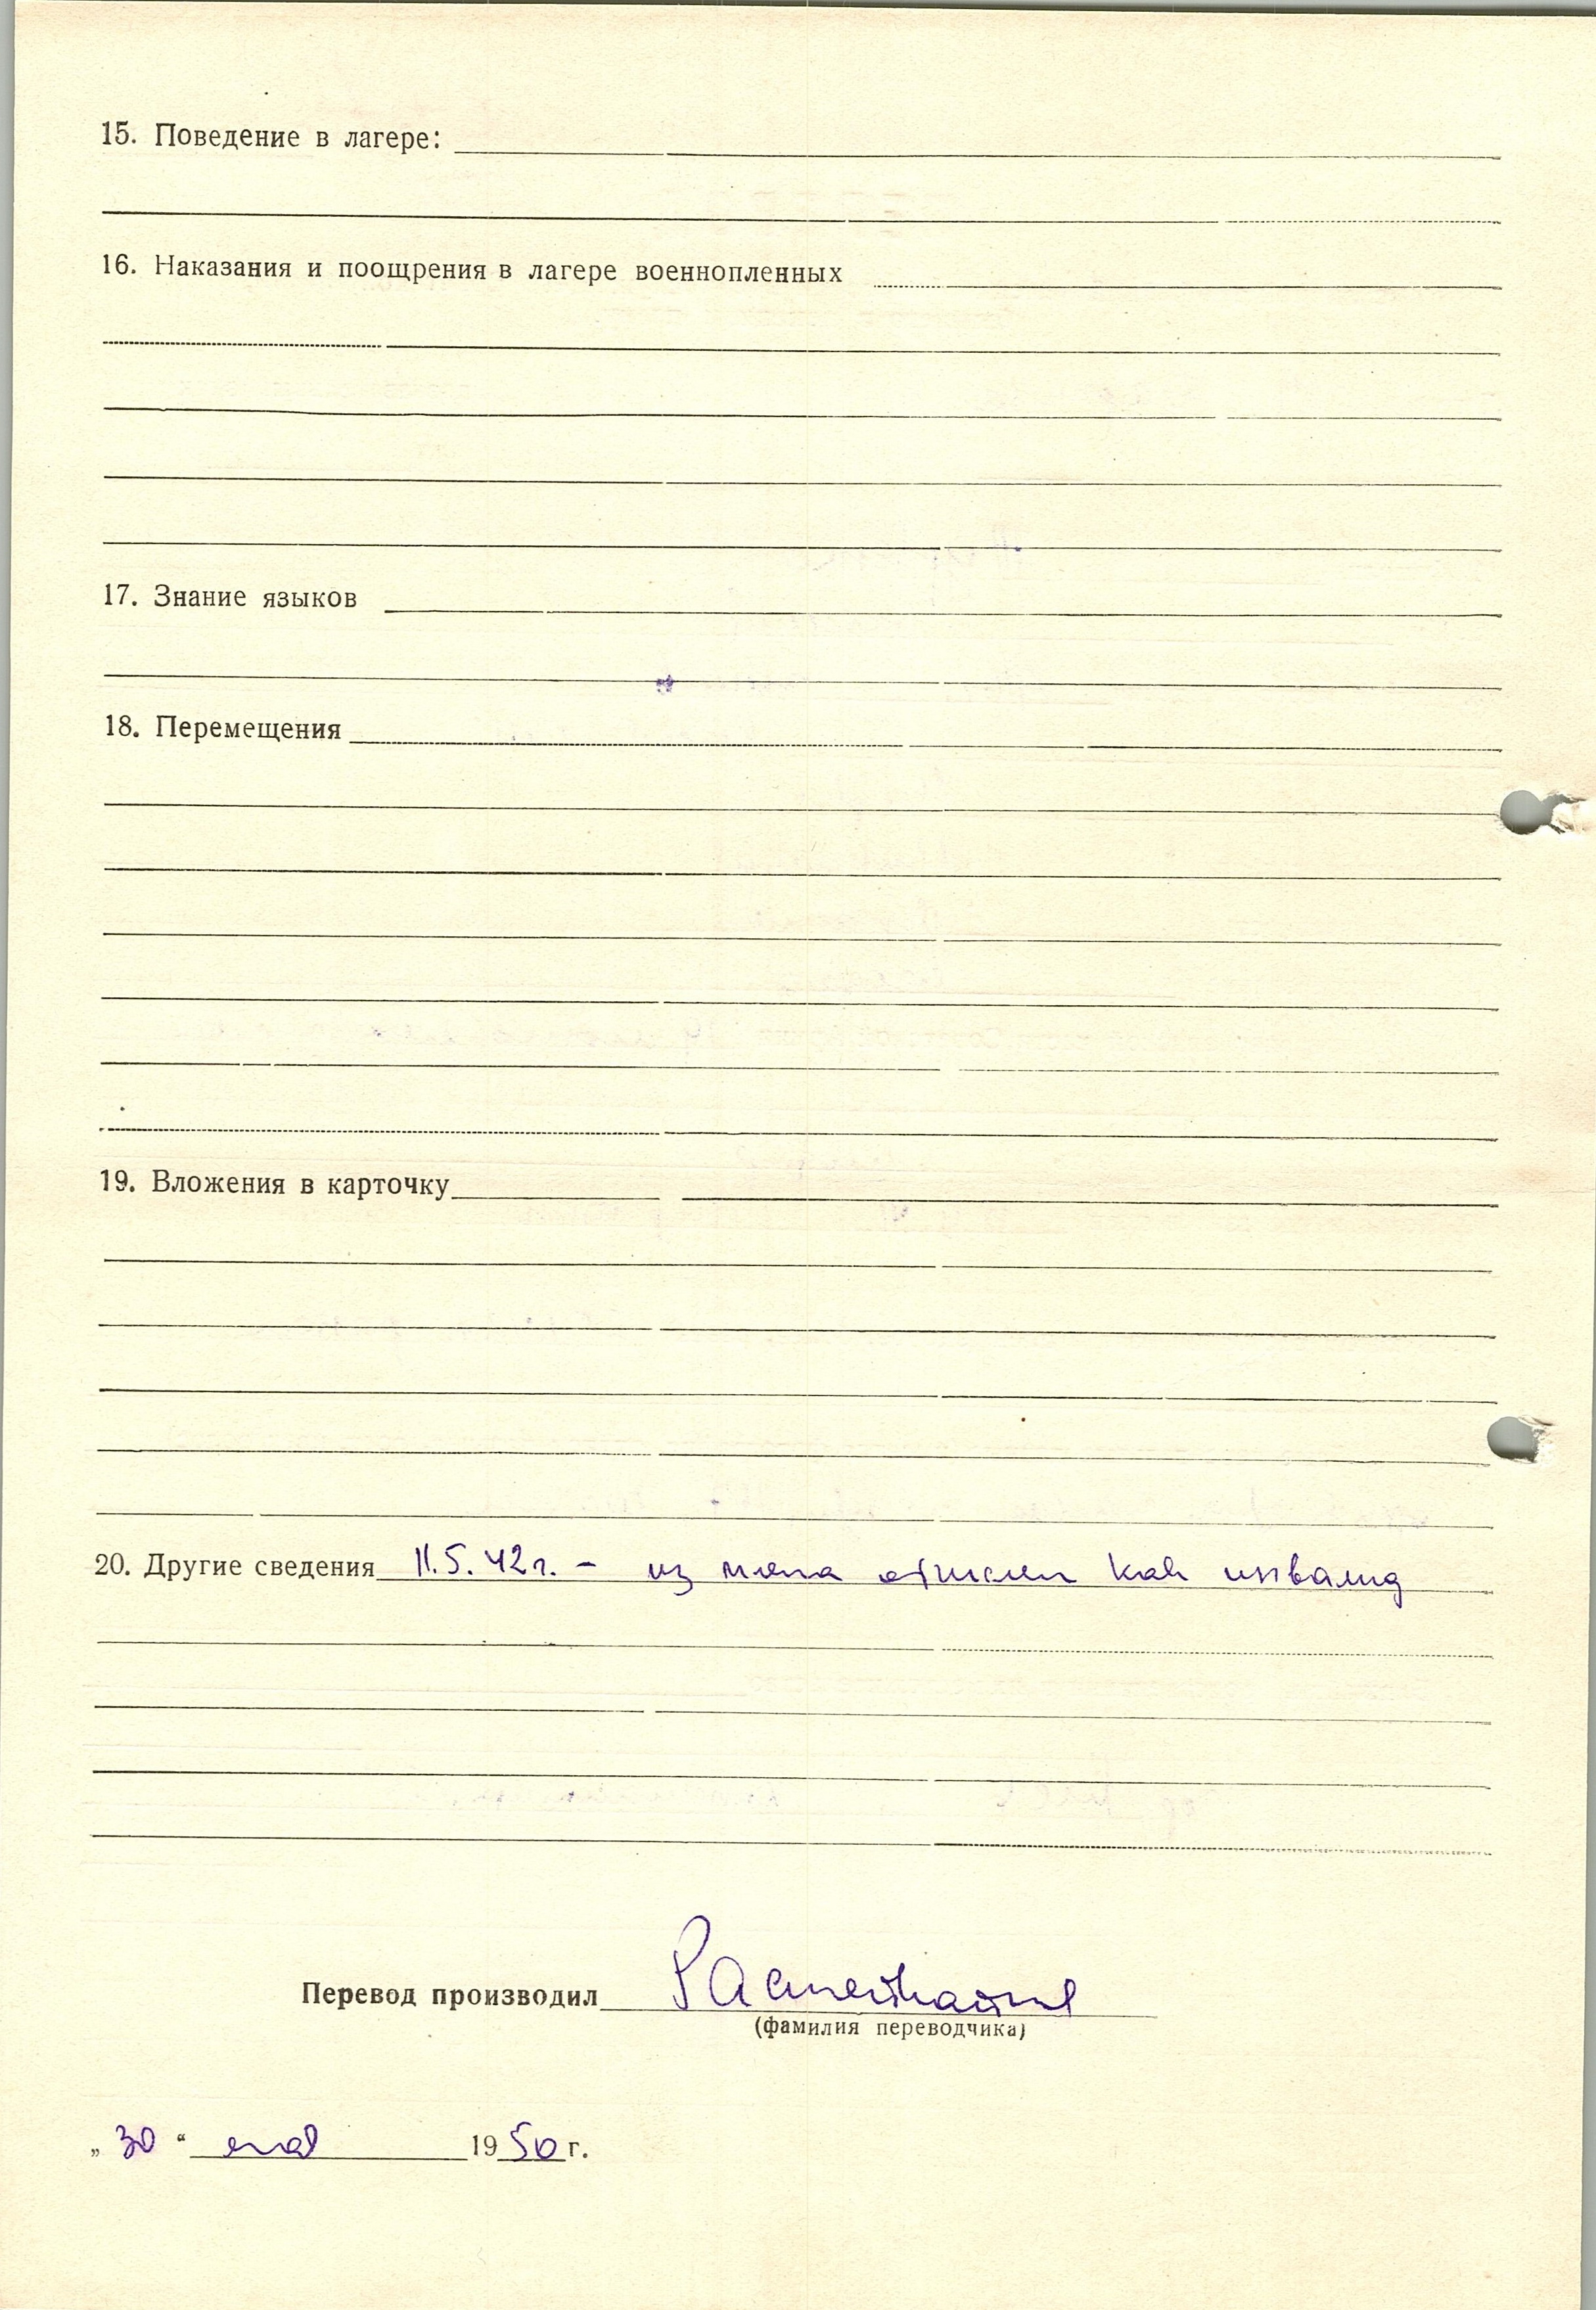 15. Поведение в лагере:
16. Наказания и поощрения в лагере военнопленных
17. Знание языков
18. Перемещения
19. Вложения в карточку
20. Другие сведения 11.5.42г. – из плена отпущен как инвалид
Перевод производил
(фамилия переводчика)
„30“ мая 1950 г.